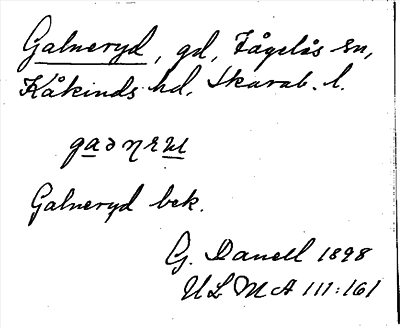 Galneryd, gd, Fågelås sn,
Kåkinds hd, Skarab. l.
Galneryd bek.
G. Danell 1898
ULMA 111:161